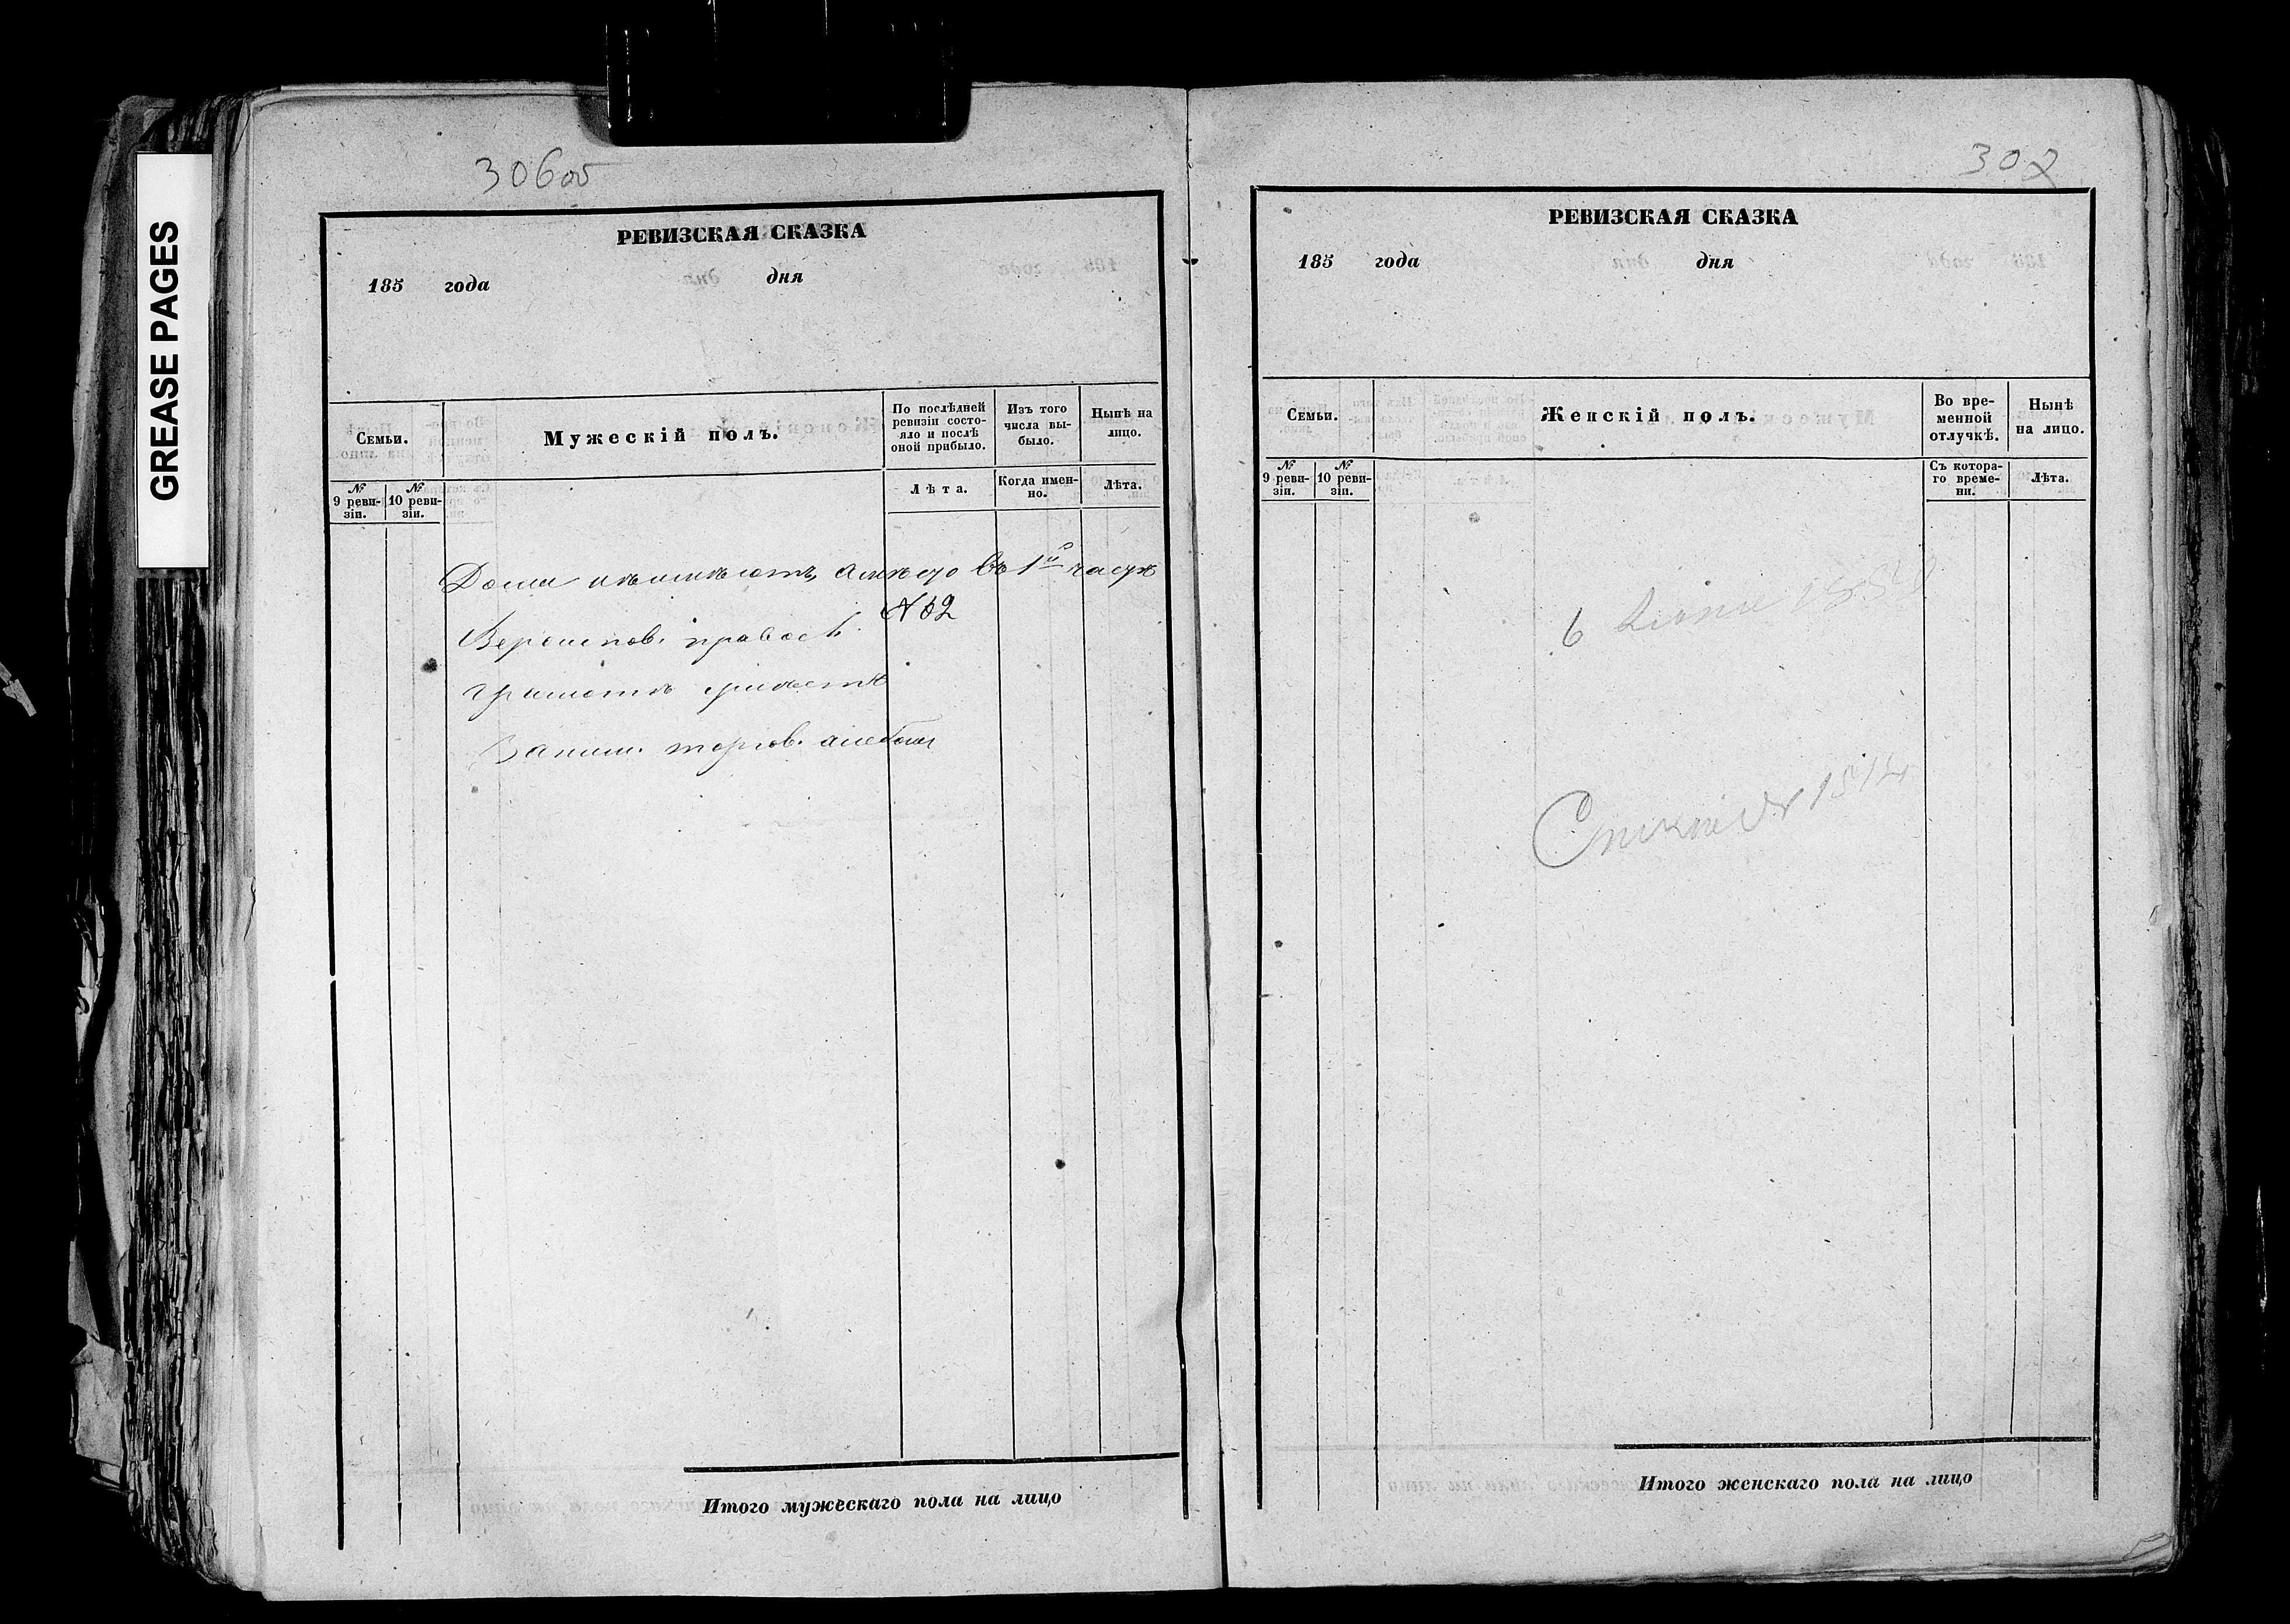 GREASE PAGES
306об
РЕВИЗСКАЯ СКАЗКА
185 года дня
Семьи.
Мужескій полъ.
По послѣдней
ревизіи состо-
яло и послѣ
оной прибыло.
Изъ того
числа вы-
было.
Нынѣ на
лицо.
№
9 реви-
зіи.
№
10 реви-
зіи.
Лѣта.
Когда имен-
но.
Лѣта.
Дома въ 1й части
№
правосл.
грамотѣ
Заним. торгов.
Итого мужескаго пола на лицо
307
РЕВИЗСКАЯ СКАЗКА
185 года дня
Семьи.
Женскій полъ.
Во вре-
менной
отлучкѣ.
Нынѣ
на лицо.
№
9 реви-
зіи.
№
10 реви-
зіи.
Съ котора-
го време-
ни.
Лѣта.
6
Итого женскаго пола на лицо